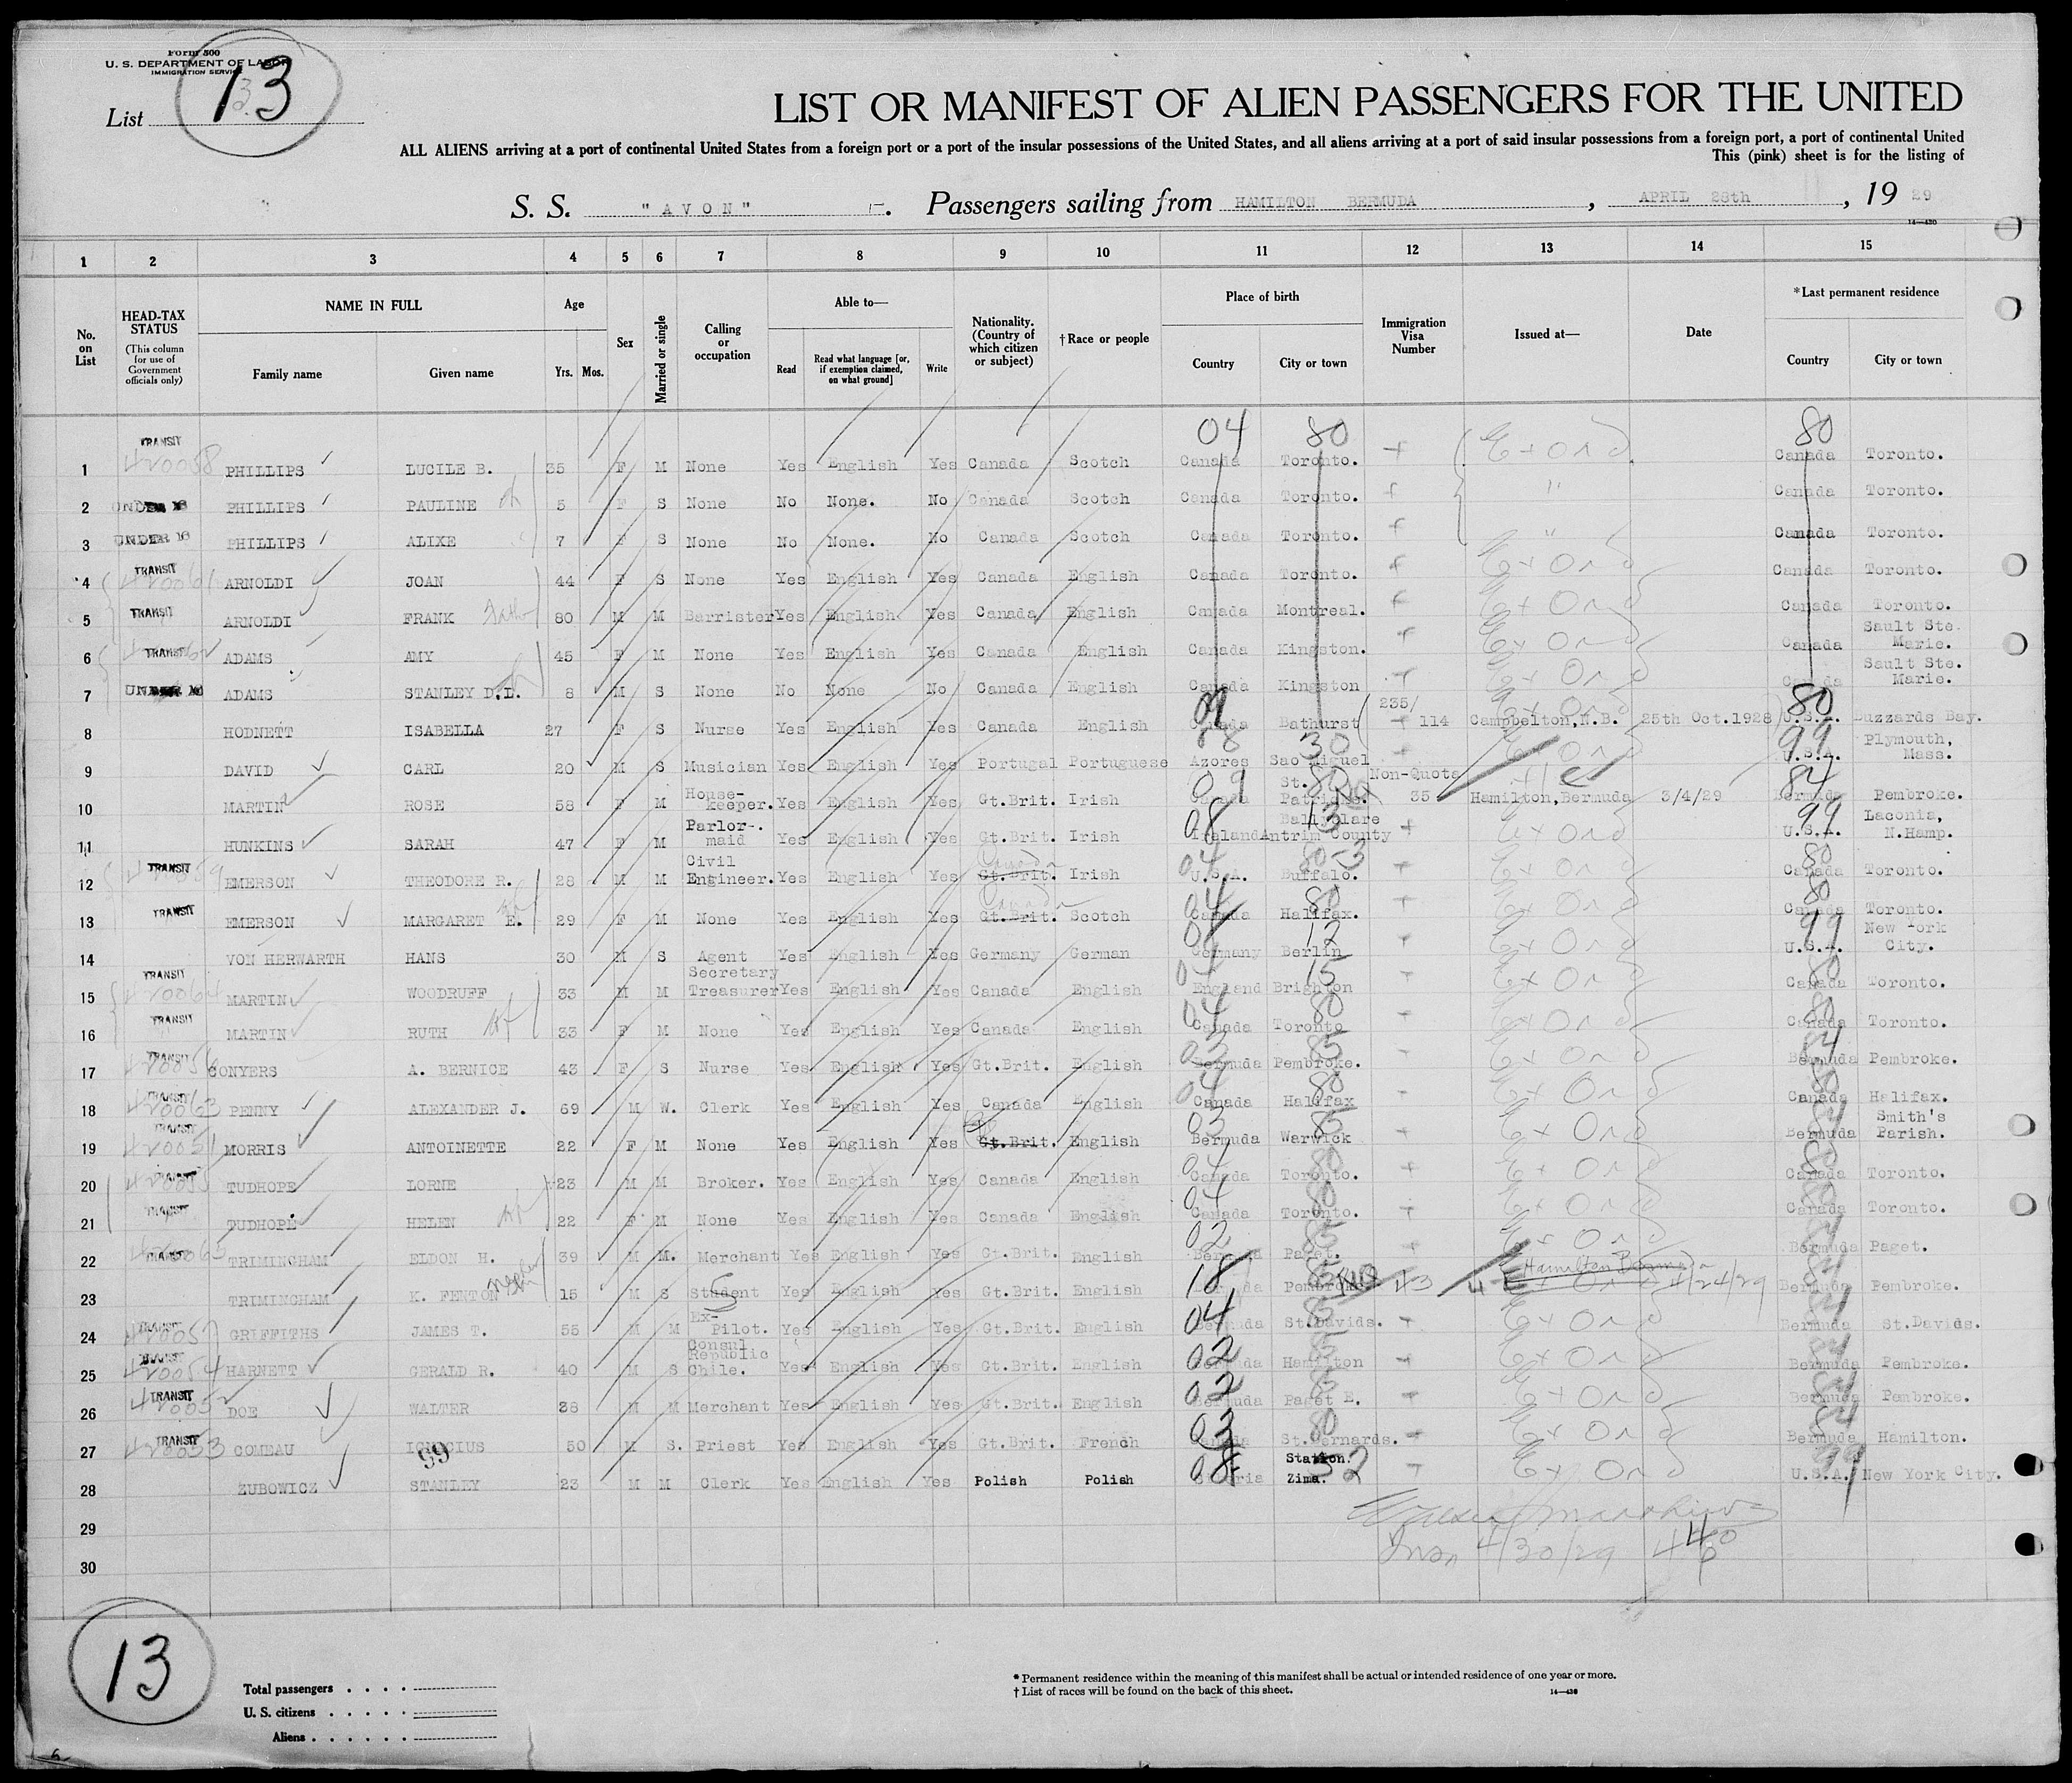 Form 500
U. S. DEPARTMENT OF LABOR
IMMIGRATION SERVICE
List 13
LIST OR MANIFEST OF ALIEN PASSENGERS FOR THE UNITED
ALL ALIENS arriving at a port of continental United States from a foreign port or a port of the insular possessions of the United States, and all aliens arriving at a port of said insular possessions from a foreign port, a port of continental United
This (pink) sheet is for the listing of
S. S. "AVON". Passengers sailing from HAMILTON BERMUDA, APRIL 28th, 19 29
14—430
1 2 3 4 5 6 7 8 9 10 11 12 13 14 15
No. on List
HEAD-TAX STATUS (This column for use of Government officials only)
NAME IN FULL Family name Given name
Age Yrs. Mos.
Sex
Married or single
Calling or occupation
Able to— Read Read what language [or, if exemption claimed, on what ground] Write
Nationality. (Country of which citizen or subject)
†Race or people
Place of birth Country City or town
Immigration Visa Number
Issued at—
Date
*Last permanent residence Country City or town
04 80 80
1 TRANSIT 420058 PHILLIPS LUCILE B. 35 F M None Yes English Yes Canada Scotch Canada Toronto. Canada Toronto.
2 UNDER 16 PHILLIPS PAULINE 5 F S None No None. No Canada Scotch Canada Toronto. " Canada Toronto.
3 UNDER 16 PHILLIPS ALIXE 7 F S None No None. No Canada Scotch Canada Toronto. " Canada Toronto.
4 TRANSIT 420061 ARNOLDI JOAN 44 F S None Yes English Yes Canada English Canada Toronto. Canada Toronto.
5 TRANSIT ARNOLDI FRANK 80 M M Barrister Yes English Yes Canada English Canada Montreal. Canada Toronto.
6 TRANSIT ADAMS AMY 45 F M None Yes English Yes Canada English Canada Kingston. Canada Sault Ste. Marie.
7 UNDER 16 ADAMS STANLEY D.L. 8 M S None No None No Canada English Canada Kingston Canada Sault Ste. Marie.
8 HODNETT ISABELLA 27 F S Nurse Yes English Yes Canada English Canada Bathurst 235/ 114 Campbelton, N.B. 25th Oct. 1928 80 U.S.A. Buzzards Bay.
9 DAVID CARL 20 M S Musician Yes English Yes Portugal Portuguese Azores 30 Sao Miguel 99 U.S.A. Plymouth, Mass.
10 MARTIN ROSE 58 F M House-keeper. Yes English Yes Gt.Brit. Irish Canada St. Patricks. Non-Quota 35 Hamilton, Bermuda 3/4/29 84 Bermuda Pembroke.
11 HUNKINS SARAH 47 F M Parlor-maid Yes English Yes Gt.Brit. Irish 08 Ireland 13 Ballyclare Antrim County 99 U.S.A. Laconia, N.Hamp.
12 TRANSIT EMERSON THEODORE R. 28 M M Civil Engineer. Yes English Yes Canada Gt.Brit. Irish U.S.A. Buffalo. 80 Canada Toronto.
13 TRANSIT EMERSON MARGARET E. 29 F M None Yes English Yes Canada Gt.Brit. Scotch 04 Canada 80 Halifax. 80 Canada Toronto.
14 VON HERWARTH HANS 30 M S Agent Yes English Yes Germany German Germany 12 Berlin 99 U.S.A. New York City.
15 TRANSIT 420064 MARTIN WOODRUFF 33 M M Secretary Treasurer Yes English Yes Canada English 04 England 15 Brighton 80 Canada Toronto.
16 TRANSIT MARTIN RUTH 33 F M None Yes English Yes Canada English 04 Canada 80 Toronto 80 Canada Toronto.
17 TRANSIT 420056 CONYERS A. BERNICE 43 F S Nurse Yes English Yes Gt.Brit. English 03 Bermuda 85 Pembroke. 84 Bermuda Pembroke.
18 TRANSIT 420063 PENNY ALEXANDER J. 69 M W. Clerk Yes English Yes Canada English 04 Canada 80 Halifax 80 Canada Halifax.
19 TRANSIT 420051 MORRIS ANTOINETTE 22 F M None Yes English Yes Gt.Brit. English 03 Bermuda 85 Warwick 84 Bermuda Smith's Parish.
20 TRANSIT TUDHOPE LORNE 23 M M Broker. Yes English Yes Canada English 04 Canada 80 Toronto. 80 Canada Toronto.
21 TRANSIT TUDHOPE HELEN 22 F M None Yes English Yes Canada English 04 Canada 80 Toronto. 80 Canada Toronto.
22 TRANSIT TRIMINGHAM ELDON H. 39 M M. Merchant Yes English Yes Gt.Brit. English 02 Bermuda 85 Paget. 84 Bermuda Paget.
23 TRIMINGHAM K. FENTON 15 M S Student Yes English Yes Gt.Brit. English 18 Bermuda Pembroke. 43 Hamilton 4/24/29 84 Bermuda Pembroke.
24 TRANSIT 420057 GRIFFITHS JAMES T. 55 M M Ex-Pilot. Yes English Yes Gt.Brit. English 04 Bermuda St.Davids. 84 Bermuda St.Davids.
25 TRANSIT 420054 HARNETT GERALD R. 40 M S Consul Republic Chile. Yes English Yes Gt.Brit. English 02 Bermuda 85 Hamilton 84 Bermuda Pembroke.
26 TRANSIT 420052 DOE WALTER 38 M M Merchant Yes English Yes Gt.Brit. English 02 Bermuda 85 Paget E. 84 Bermuda Pembroke.
27 TRANSIT 420053 COMEAU IGNACIUS 50 M S. Priest Yes English Yes Gt.Brit. French 03 Canada 80 St.Bernards. 84 Bermuda Hamilton.
28 ZUBOWICZ STANLEY 23 M M Clerk Yes English Yes Polish Polish 08 Siberia Station. Zima. 52 99 U.S.A. New York City.
59
29
30
4/30/29
13
Total passengers
U. S. citizens
Aliens
* Permanent residence within the meaning of this manifest shall be actual or intended residence of one year or more.
† List of races will be found on the back of this sheet.
14—430